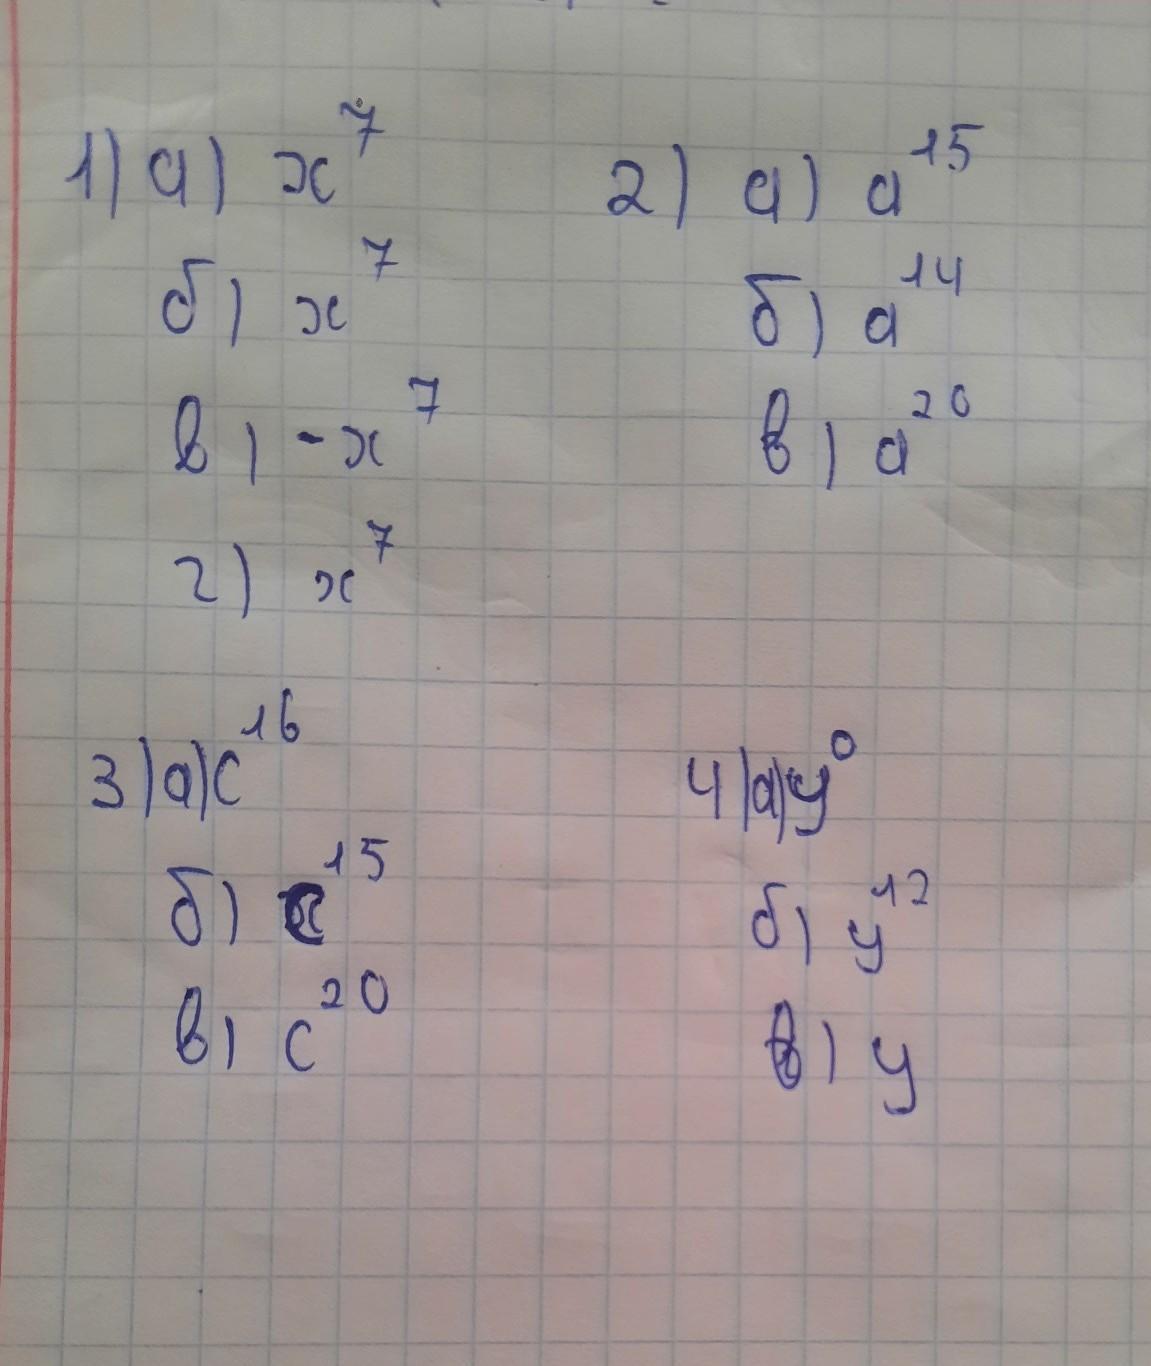 1) а) x⁷
б) x⁷
в) -x⁷
г) x⁷
2) а) a¹⁵
б) a¹⁴
в) a²⁰
3) а) c¹⁶
б) c¹⁵
в) c²⁰
4) а) y⁰
б) y¹²
в) y